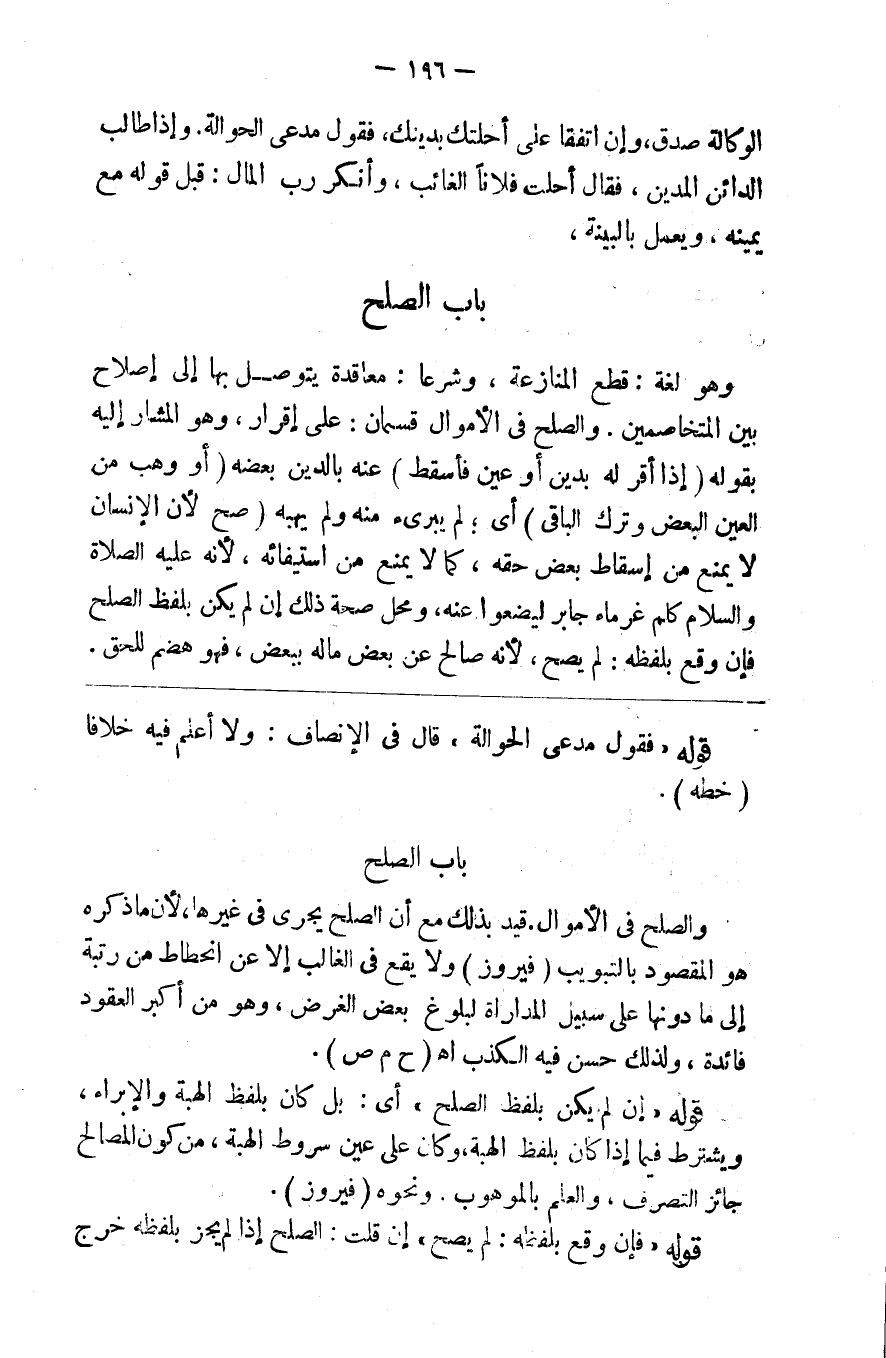 — ١٩٦ —
الوكالة صدق، وإن اتفقا على أحلتك بدينك، فقول مدعى الحوالة. وإذا طالب
الدائن المدين ، فقال أحلت فلاناً الغائب ، وأنكر رب المال : قبل قوله مع
يمينه ، ويعمل بالبينة ،
باب الصلح
وهو لغة : قطع المنازعة ، وشرعا : معاقدة يتوصل بها إلى إصلاح
بين المتخاصمين . والصلح فى الأموال قسمان : على إقرار ، وهو المشار إليه
بقوله ( إذا أقر له بدين أو عين فأسقط ) عنه بالدين بعضه ( أو وهب من
العين البعض وترك الباقى ) أى : لم يبرىء منه ولم يهبه ( صح لأن الإنسان
لا يمنع من إسقاط بعض حقه ، كما لا يمنع من استيفائه ، لأنه عليه الصلاة
والسلام كلم غرماء جابر ليضعوا عنه، ومحل صحة ذلك إن لم يكن بلفظ الصلح
فإن وقع بلفظه : لم يصح ، لأنه صالح عن بعض ماله ببعض ، فهو هضم للحق .
قوله « فقول مدعى الحوالة ، قال فى الإنصاف : ولا أعلم فيه خلافا
( خطه ) .
باب الصلح
والصلح فى الأموال . قيد بذلك مع أن الصلح يجرى فى غيرها، لأن ما ذكره
هو المقصود بالتبويب ( فيروز ) ولا يقع فى الغالب إلا عن انحطاط من رتبة
إلى ما دونها على سبيل المداراة لبلوغ بعض الغرض ، وهو من أكبر العقود
فائدة ، ولذلك حسن فيه الكذب اه ( ح م ص ) .
قوله « إن لم يكن بلفظ الصلح » أى : بل كان بلفظ الهبة والإبراء ،
ويشترط فيما إذا كان بلفظ الهبة، وكان على عين سروط الهبة ، من كون المصالح
جائز التصرف ، والعلم بالموهوب . ونحوه ( فيروز ) .
قوله « فإن وقع بلفظه : لم يصح » إن قلت : الصلح إذا لم يجز بلفظه خرج